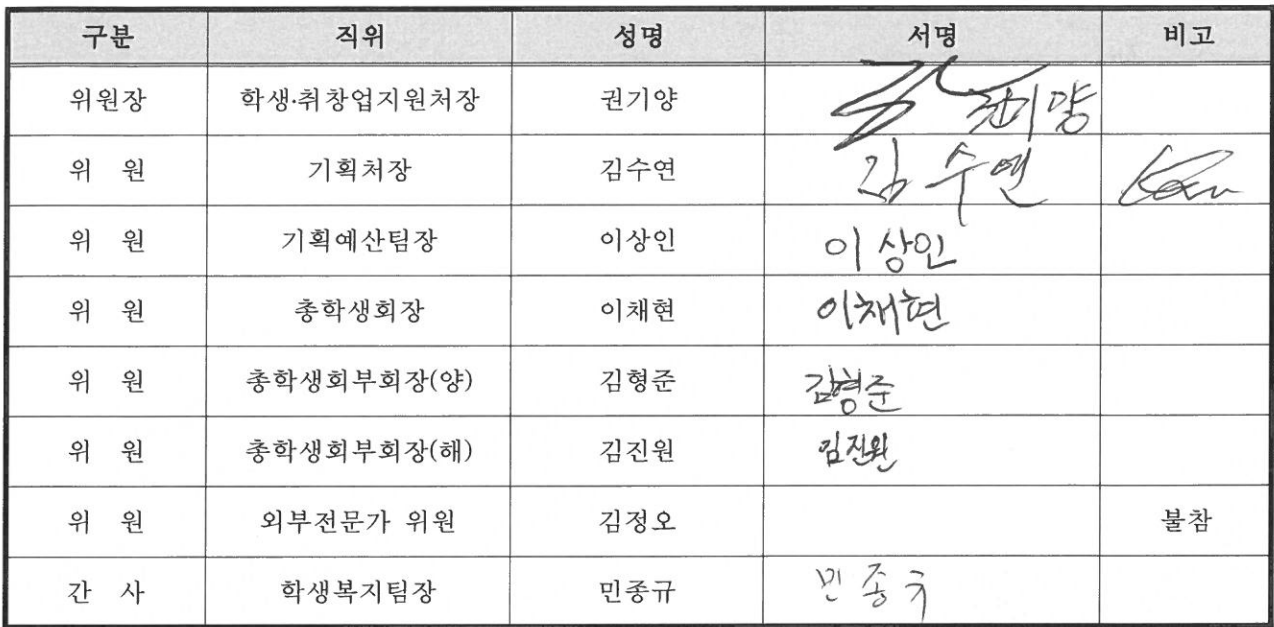 구분 직위 성명 서명 비고
위원장 학생·취창업지원처장 권기양 권기양
위 원 기획처장 김수연 김수연
위 원 기획예산팀장 이상인 이상인
위 원 총학생회장 이채현 이채현
위 원 총학생회부회장(양) 김형준 김형준
위 원 총학생회부회장(해) 김진원 김진원
위 원 외부전문가 위원 김정오 불참
간 사 학생복지팀장 민종규 민종규